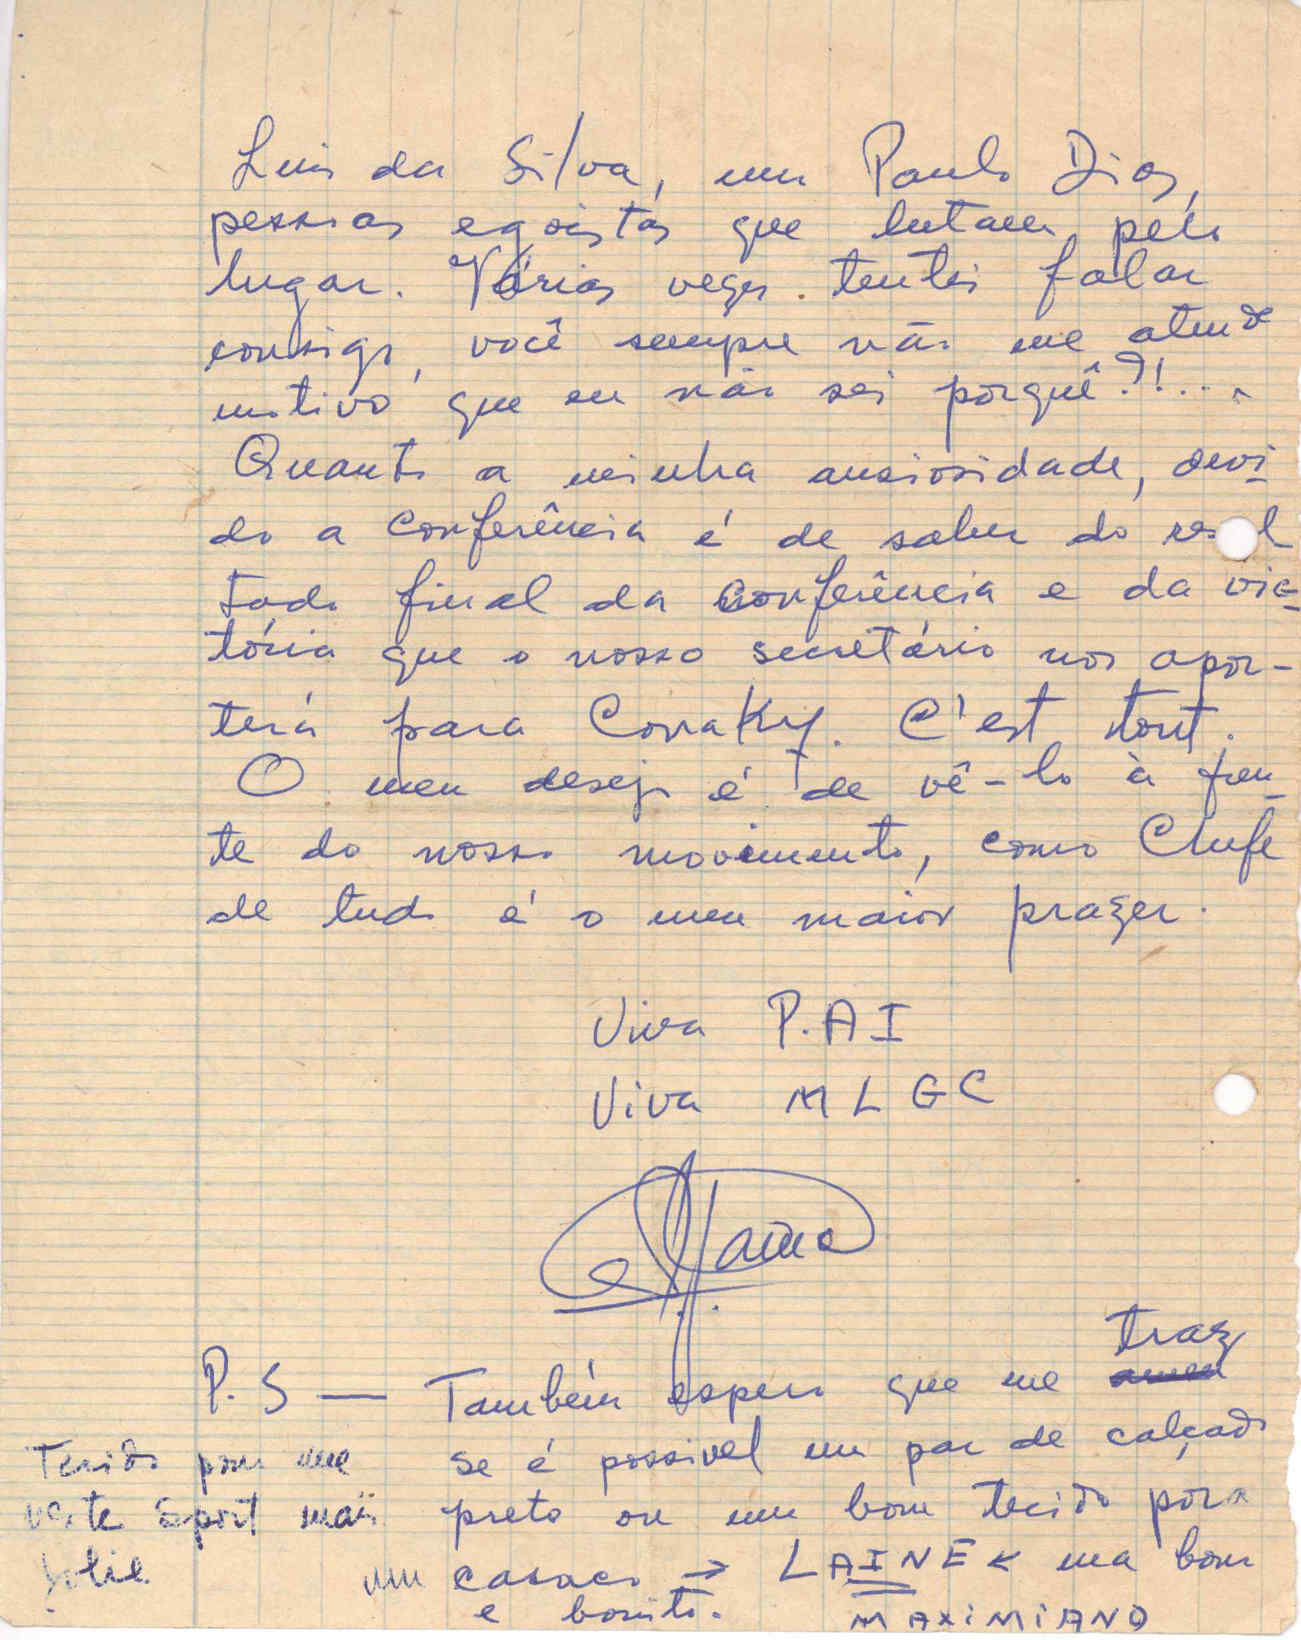 Luis da Silva, um Paulo Dias,
pessoas egoistas que lutam pelo
lugar. Várias vezes tentei falar
consigo, você sempre não me atende
motivo que eu não sei porquê?!...
Quanto a minha ansiosidade, devi-
do a conferência é de saber do resul
tado final da conferência e da vic-
tória que o nosso secretário nos apor-
terá para Conakry. C'est tout.
O meu desejo é de vê-lo à fren-
te do nosso movimento, como Chefe
de tudo é o meu maior prazer.
Viva P.AI
Viva MLGC
P.S — Também espero que me traz
se é possivel um par de calçado
preto ou um bom tecido para
um casaco → LAINE bom
e bonito. MAXIMIANO
Tecido pour une
veste Sport mais
jolie